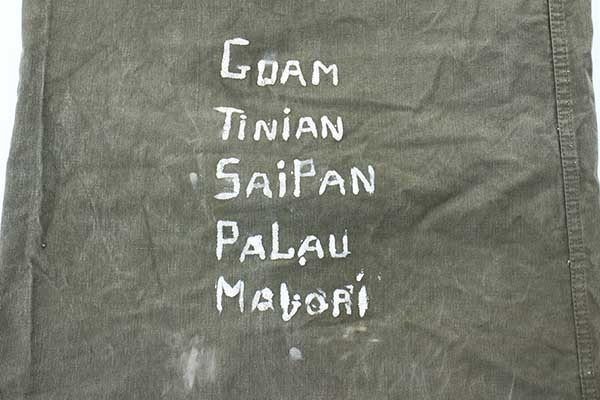 GOAM
TiNiAN
SAiPAN
PALAU
MAlORi